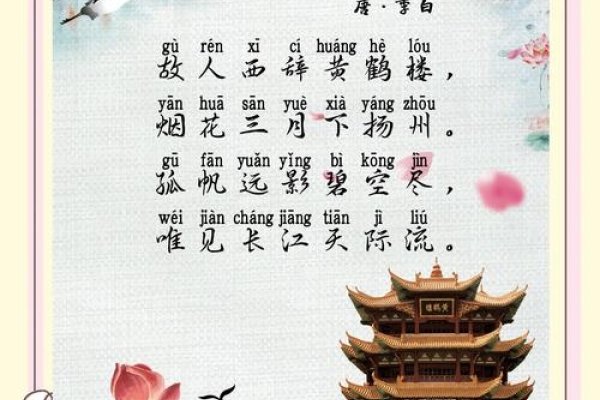 唐·李白
gù rén xī cí huáng hè lóu
故人西辞黄鹤楼，
yān huā sān yuè xià yáng zhōu
烟花三月下扬州。
gū fān yuǎn yǐng bì kōng jìn
孤帆远影碧空尽，
wéi jiàn cháng jiāng tiān jì liú
唯见长江天际流。
黄鹤楼